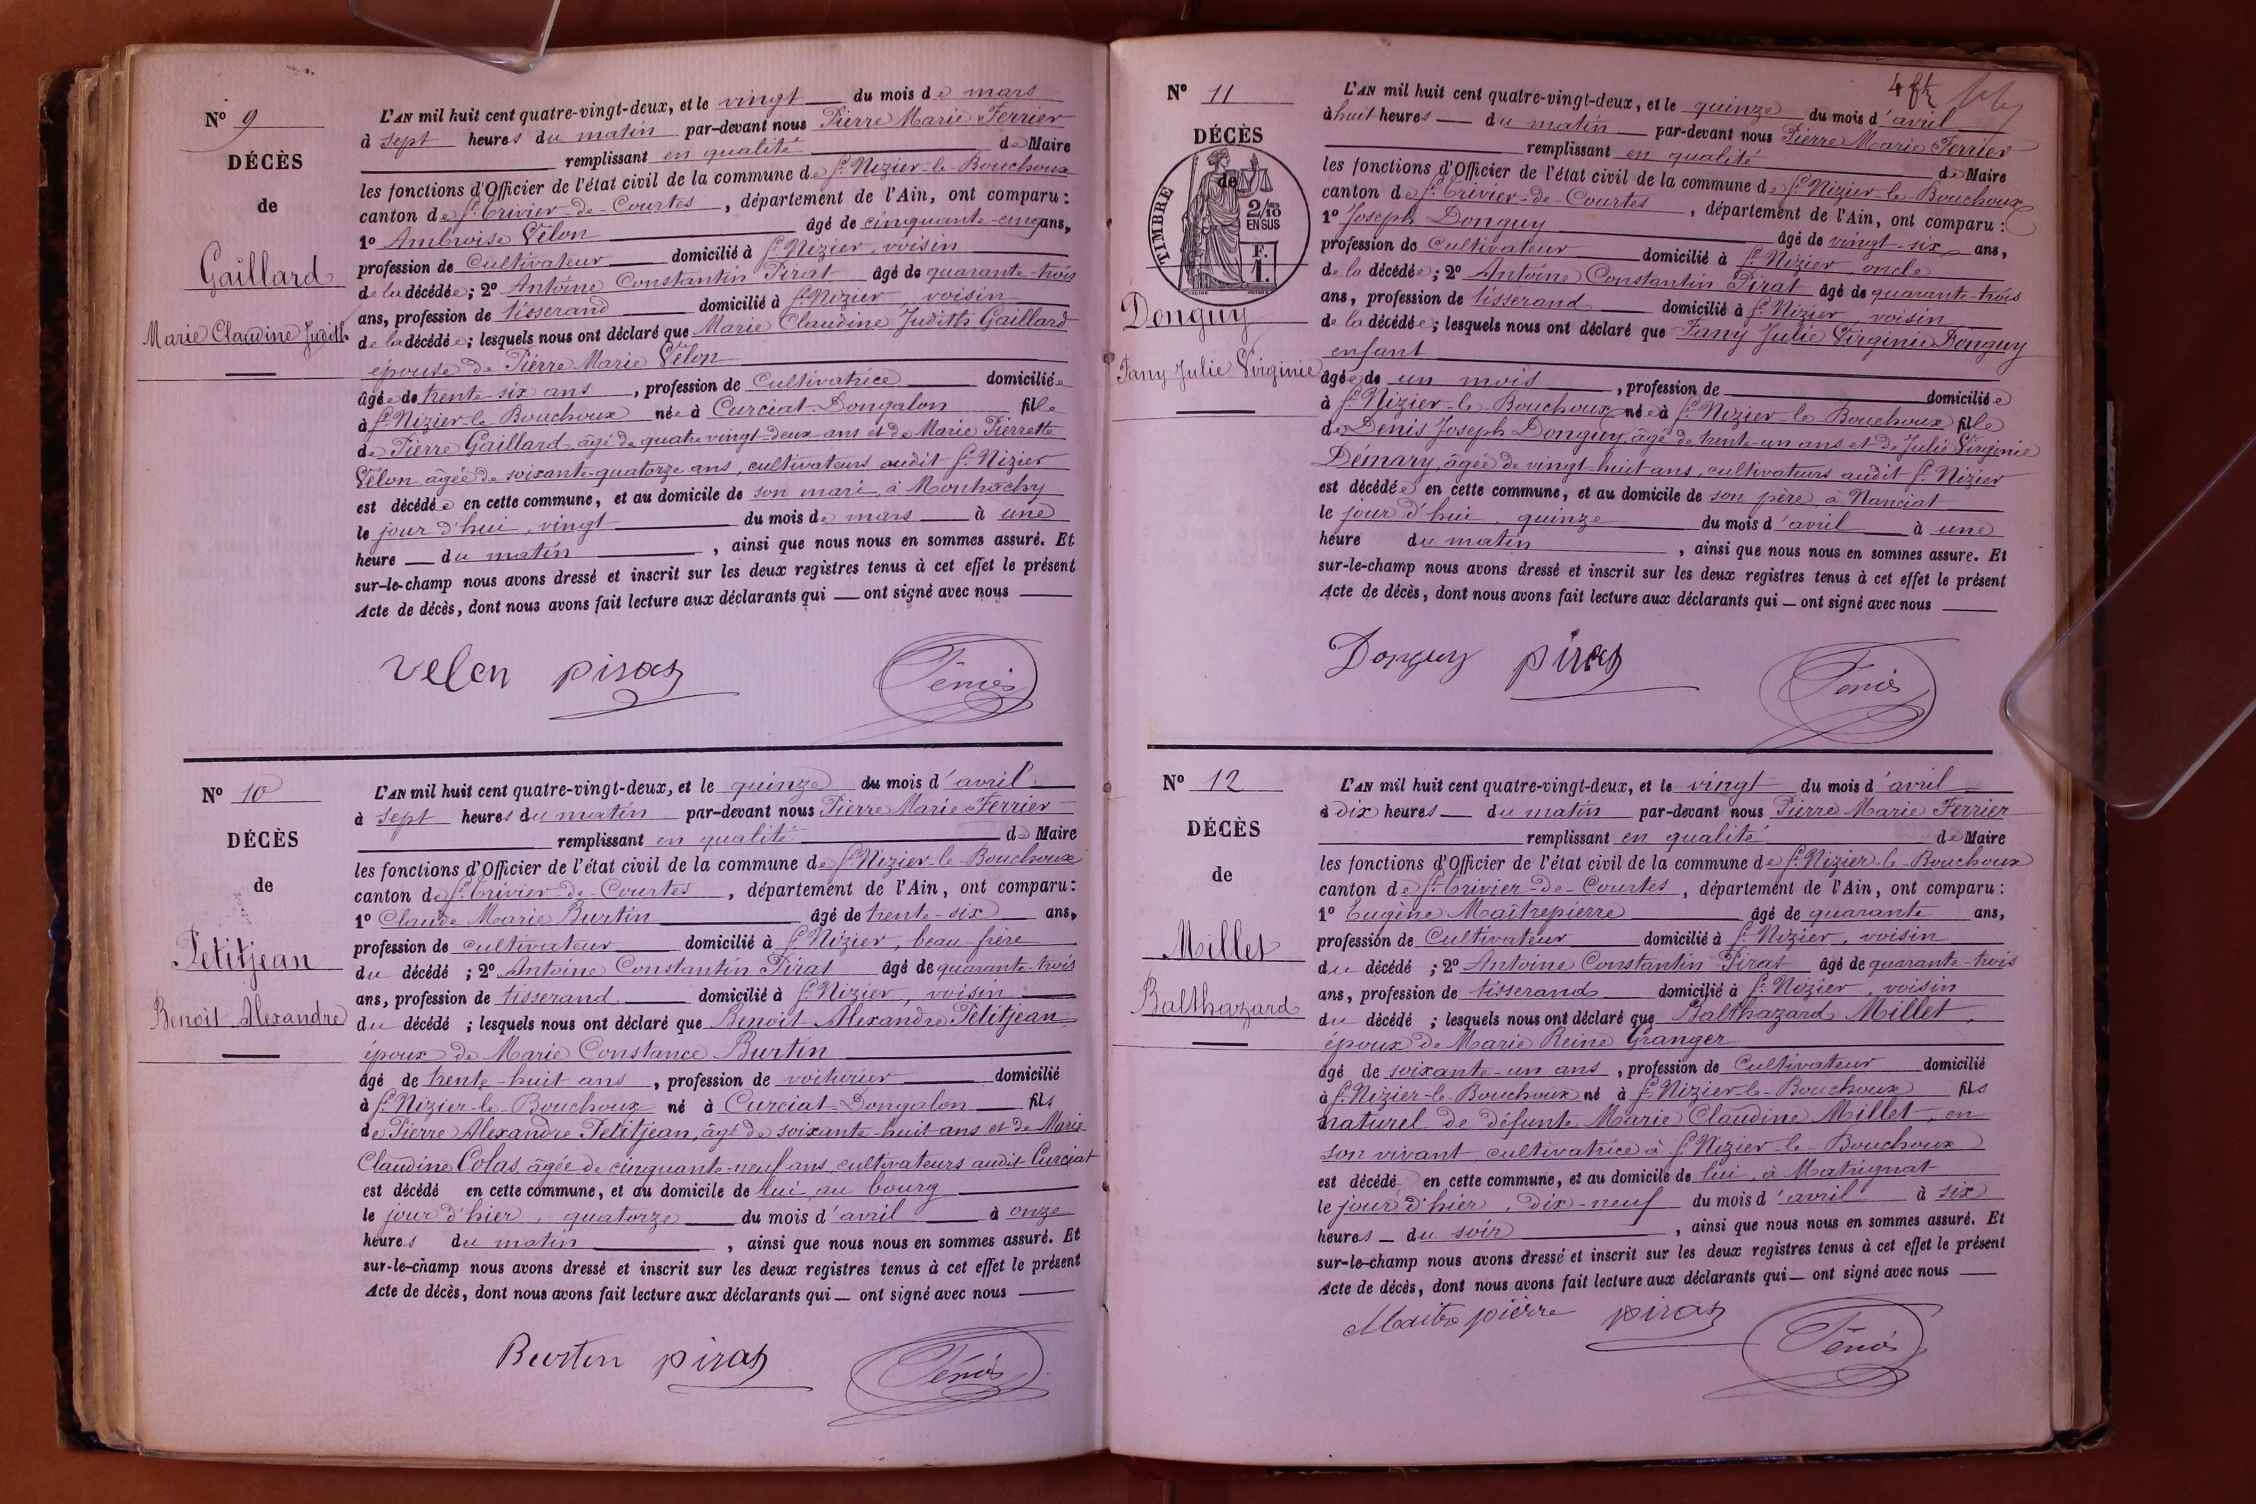 N° 9
DÉCÈS
de
Gaillard
Marie Claudine Judith
L'AN mil huit cent quatre-vingt-deux, et le vingt du mois de mars
à sept heures du matin par-devant nous Pierre Marie Ferrier
remplissant en qualité de Maire
les fonctions d'Officier de l'état civil de la commune de St Nizier-le-Bouchoux
canton de St Trivier-de-Courtes, département de l'Ain, ont comparu :
1° Ambroise Vélon âgé de cinquante-cinq ans,
profession de Cultivateur domicilié à St Nizier, voisin
de la décédée ; 2° Antoine Constantin Pirat âgé de quarante-trois
ans, profession de tisserand domicilié à St Nizier, voisin
de la décédée ; lesquels nous ont déclaré que Marie Claudine Judith Gaillard
épouse de Pierre Marie Vélon
âgée de trente-six ans, profession de Cultivatrice domiciliée
à St Nizier-le-Bouchoux née à Curciat-Dongalon fille
de Pierre Gaillard âgé de quatre vingt-deux ans et de Marie Pierrette
Vélon âgée de soixante-quatorze ans, cultivateurs audit St Nizier
est décédée en cette commune, et au domicile de son mari, à
le jour d'hui, vingt du mois de mars à une
heure du matin, ainsi que nous nous en sommes assuré. Et
sur-le-champ nous avons dressé et inscrit sur les deux registres tenus à cet effet le présent
Acte de décès, dont nous avons fait lecture aux déclarants qui ont signé avec nous
Velon pirat
N° 10
DÉCÈS
de
Petitjean
Benoit Alexandre
L'AN mil huit cent quatre-vingt-deux, et le quinze du mois d'avril
à sept heures du matin par-devant nous Pierre Marie Ferrier
remplissant en qualité de Maire
les fonctions d'Officier de l'état civil de la commune de St Nizier-le-Bouchoux
canton de St Trivier-de-Courtes, département de l'Ain, ont comparu :
1° Claude Marie Burtin âgé de trente-six ans,
profession de cultivateur domicilié à St Nizier, beau-frère
du décédé ; 2° Antoine Constantin Pirat âgé de quarante-trois
ans, profession de tisserand domicilié à St Nizier, voisin
du décédé ; lesquels nous ont déclaré que Benoit Alexandre Petitjean
époux de Marie Constance Burtin
âgé de trente-huit ans, profession de voiturier domicilié
à St Nizier-le-Bouchoux né à Curciat-Dongalon fils
de Pierre Alexandre Petitjean, âgé de soixante-huit ans et de Marie
Claudine Colas âgée de cinquante-neuf ans, cultivateurs audit Curciat
est décédé en cette commune, et au domicile de lui, au bourg
le jour d'hier, quatorze du mois d'avril à onze
heures du matin, ainsi que nous nous en sommes assuré. Et
sur-le-champ nous avons dressé et inscrit sur les deux registres tenus à cet effet le présent
Acte de décès, dont nous avons fait lecture aux déclarants qui ont signé avec nous
Burtin pirat
N° 11
DÉCÈS
de
TIMBRE
2/10
EN SUS
F.
1.
Donguy
Fany Julie Virginie
L'AN mil huit cent quatre-vingt-deux, et le quinze du mois d'avril
à huit heures du matin par-devant nous Pierre Marie Ferrier
remplissant en qualité de Maire
les fonctions d'Officier de l'état civil de la commune de St Nizier-le-Bouchoux
canton de St Trivier-de-Courtes, département de l'Ain, ont comparu :
1° Joseph Donguy âgé de vingt-six ans,
profession de Cultivateur domicilié à St Nizier, oncle
de la décédée ; 2° Antoine Constantin Pirat âgé de quarante-trois
ans, profession de tisserand domicilié à St Nizier, voisin
de la décédée ; lesquels nous ont déclaré que Fany Julie Virginie Donguy
enfant
âgée de un mois, profession de domiciliée
à St Nizier-le-Bouchoux née à St Nizier-le-Bouchoux fille
de Denis Joseph Donguy, âgé de trente-un ans et de Julie Virginie
Démary, âgée de vingt-huit ans, cultivateurs audit St Nizier
est décédée en cette commune, et au domicile de son père, à Nanciat
le jour d'hui, quinze du mois d'avril à une
heure du matin, ainsi que nous nous en sommes assuré. Et
sur-le-champ nous avons dressé et inscrit sur les deux registres tenus à cet effet le présent
Acte de décès, dont nous avons fait lecture aux déclarants qui ont signé avec nous
Donguy pirat
N° 12
DÉCÈS
de
Millet
Balthazard
L'AN mil huit cent quatre-vingt-deux, et le vingt du mois d'avril
à dix heures du matin par-devant nous Pierre Marie Ferrier
remplissant en qualité de Maire
les fonctions d'Officier de l'état civil de la commune de St Nizier-le-Bouchoux
canton de St Trivier-de-Courtes, département de l'Ain, ont comparu :
1° Eugène Maîtrepierre âgé de quarante ans,
profession de Cultivateur domicilié à St Nizier, voisin
du décédé ; 2° Antoine Constantin Pirat âgé de quarante-trois
ans, profession de tisserand domicilié à St Nizier, voisin
du décédé ; lesquels nous ont déclaré que Balthazard Millet,
époux de Marie Reine Granger
âgé de soixante-un ans, profession de Cultivateur domicilié
à St Nizier-le-Bouchoux né à St Nizier-le-Bouchoux fils
naturel de défunte Marie Claudine Millet, en
son vivant cultivatrice à St Nizier-le-Bouchoux
est décédé en cette commune, et au domicile de lui, à Matrignat
le jour d'hier, dix-neuf du mois d'avril à six
heures du soir, ainsi que nous nous en sommes assuré. Et
sur-le-champ nous avons dressé et inscrit sur les deux registres tenus à cet effet le présent
Acte de décès, dont nous avons fait lecture aux déclarants qui ont signé avec nous
Maitrepierre pirat